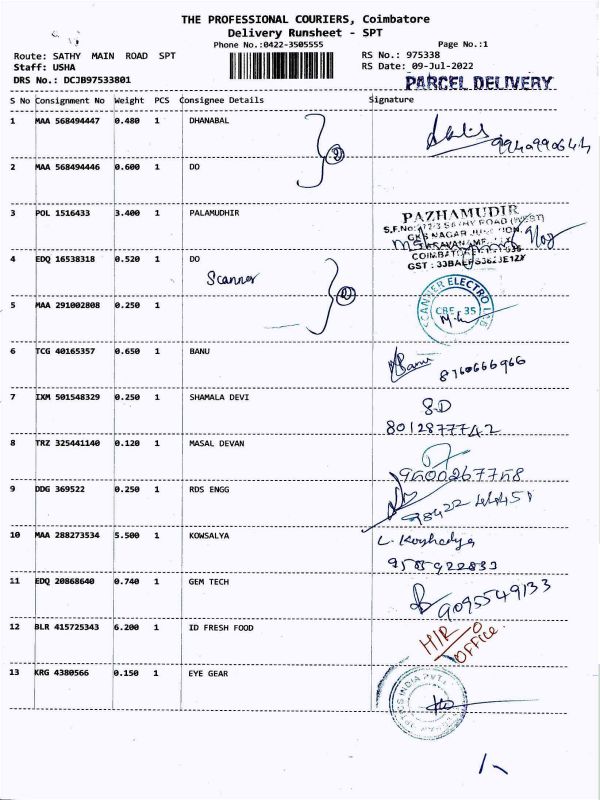 THE PROFESSIONAL COURIERS, Coimbatore
Delivery Runsheet - SPT
Phone No.:0422-3505555 Page No.:1
Route: SATHY MAIN ROAD SPT RS No.: 975338
Staff: USHA RS Date: 09-Jul-2022
DRS No.: DCJB97533801 PARCEL DELIVERY
S No Consignment No Weight PCS Consignee Details Signature
1 MAA 568494447 0.480 1 DHANABAL
2 MAA 568494446 0.600 1 DO
3 POL 1516433 3.400 1 PALAMUDHIR
PAZHAMUDIR
4 EDQ 16538318 0.520 1 DO
Scanner
5 MAA 291002808 0.250 1
SCANNER ELECTRO
CBE 35
6 TCG 40165357 0.650 1 BANU
Banu 8760666966
7 IXM 501548329 0.250 1 SHAMALA DEVI
SD
8012877742
8 TRZ 325441140 0.120 1 MASAL DEVAN
9500267758
9 DDG 369522 0.250 1 RDS ENGG
10 MAA 288273534 5.500 1 KOWSALYA
11 EDQ 20868640 0.740 1 GEM TECH
9095549133
12 BLR 415725343 6.200 1 ID FRESH FOOD
OFFICE
13 KRG 4380566 0.150 1 EYE GEAR